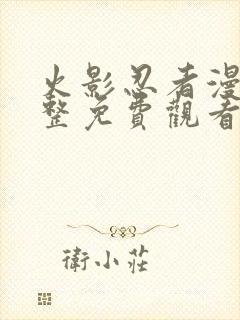 火影忍者漫
整免費觀看
衛小莊